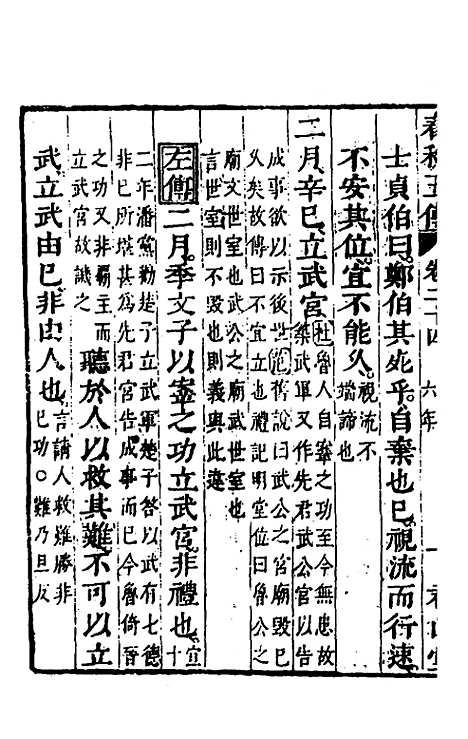 春秋五傳 卷二十四 六年 一
士貞伯曰鄭伯其死乎自棄也已視流而行速
不安其位宜不能久視流不端諦也
二月辛巳立武宮杜魯人自鞌之功至今無患故築武軍又作先君武公宮以告
成事欲以示後世范舊說曰武公之宮廟毀已久矣故傳曰不宜立也禮記明堂位曰魯公之
廟文世室也武公之廟武世室也言世室則不毀也則義與此違
左傳二月季文子以鞌之功立武宮非禮也宣十
二年潘黨勸楚子立武軍楚子答以武有七德非已所堪甚爲先君宮告成事而已今魯倚晉
之功又非霸主而立武宮故譏之聽於人以救其難不可以立
武立武由已非由人也言請人救難勝非已功○難乃旦反